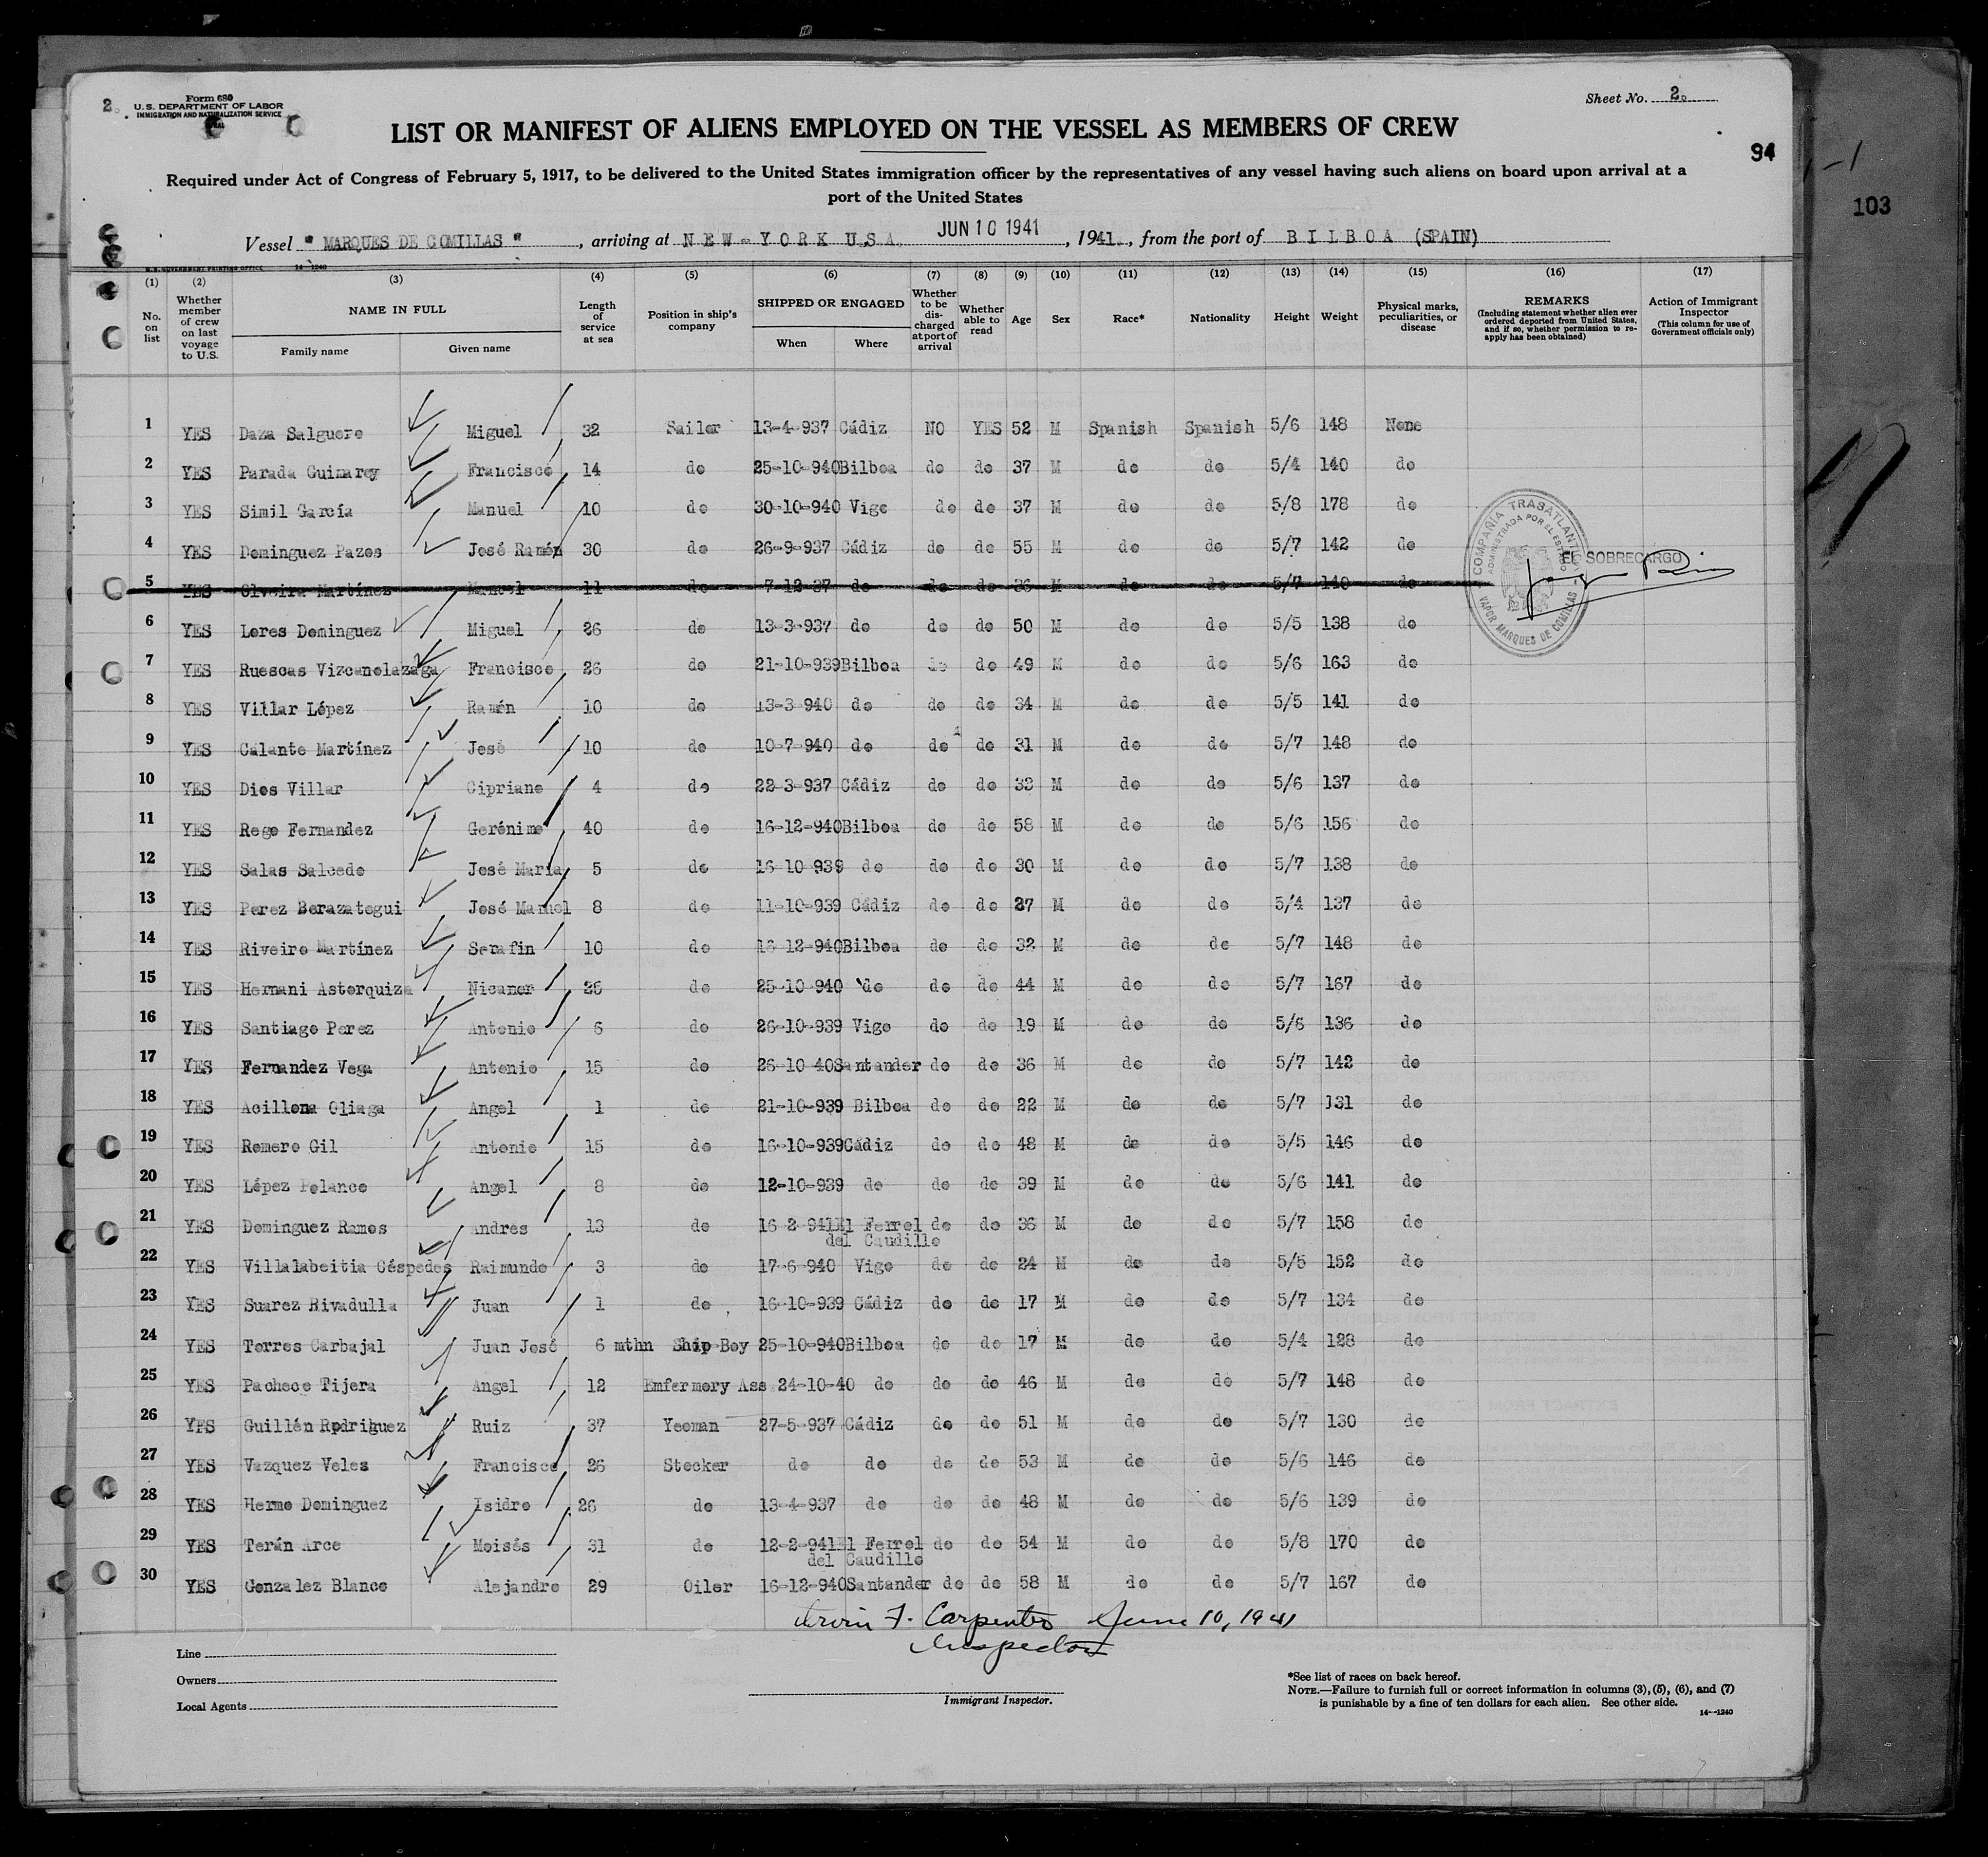 2.
Form 680
U.S. DEPARTMENT OF LABOR
IMMIGRATION AND NATURALIZATION SERVICE
Sheet No. 2.
LIST OR MANIFEST OF ALIENS EMPLOYED ON THE VESSEL AS MEMBERS OF CREW
94
103
Required under Act of Congress of February 5, 1917, to be delivered to the United States immigration officer by the representatives of any vessel having such aliens on board upon arrival at a
port of the United States
Vessel " MARQUES DE COMILLAS " , arriving at NEW-YORK U.S.A. JUN 10 1941 , 1941., from the port of BILBOA (SPAIN)
U.S. GOVERNMENT PRINTING OFFICE 14-1240
(1) (2) (3) (4) (5) (6) (7) (8) (9) (10) (11) (12) (13) (14) (15) (16) (17)
No. on list
Whether member of crew on last voyage to U.S.
NAME IN FULL
Family name
Given name
Length of service at sea
Position in ship's company
SHIPPED OR ENGAGED
When
Where
Whether to be discharged at port of arrival
Whether able to read
Age
Sex
Race*
Nationality
Height
Weight
Physical marks, peculiarities, or disease
REMARKS
(Including statement whether alien ever ordered deported from United States, and if so, whether permission to reapply has been obtained)
Action of Immigrant Inspector
(This column for use of Government officials only)
1 YES Daza Salguero Miguel 32 Sailor 13-4-937 Cádiz NO YES 52 M Spanish Spanish 5/6 148 None
2 YES Parada Guimarey Francisco 14 do 25-10-940 Bilboa do do 37 M do do 5/4 140 do
3 YES Simil García Manuel 10 do 30-10-940 Vigo do do 37 M do do 5/8 178 do
4 YES Dominguez Pazos José Ramón 30 do 26-9-937 Cádiz do do 55 M do do 5/7 142 do
5 YES Olveira Martínez Manuel 11 do 7-12-37 do do do 36 M do do 5/7 140 do
6 YES Lores Dominguez Miguel 26 do 13-3-937 do do do 50 M do do 5/5 138 do
7 YES Ruescas Vizcanolazaga Francisco 26 do 21-10-939 Bilboa do do 49 M do do 5/6 163 do
8 YES Villar López Ramón 10 do 13-3-940 do do do 34 M do do 5/5 141 do
9 YES Calante Martínez José 10 do 10-7-940 do do do 31 M do do 5/7 148 do
10 YES Dios Villar Cipriano 4 do 22-3-937 Cádiz do do 33 M do do 5/6 137 do
11 YES Rego Fernandez Gerónimo 40 do 16-12-940 Bilboa do do 58 M do do 5/6 156 do
12 YES Salas Salcedo José María 5 do 16-10-939 do do do 30 M do do 5/7 138 do
13 YES Perez Berazategui José Manuel 8 do 11-10-939 Cádiz do do 27 M do do 5/4 137 do
14 YES Riveiro Martínez Serafin 10 do 16-12-940 Bilboa do do 32 M do do 5/7 148 do
15 YES Hernani Astorquiza Nicanor 26 do 25-10-940 do do do 44 M do do 5/7 167 do
16 YES Santiago Perez Antonio 6 do 26-10-939 Vigo do do 19 M do do 5/6 136 do
17 YES Fernandez Vega Antonio 15 do 26-10-40 Santander do do 36 M do do 5/7 142 do
18 YES Acillona Oliaga Angel 1 do 21-10-939 Bilboa do do 22 M do do 5/7 131 do
19 YES Romero Gil Antonio 15 do 16-10-939 Cádiz do do 48 M do do 5/5 146 do
20 YES López Polanco Angel 8 do 12-10-939 do do do 39 M do do 5/6 141 do
21 YES Dominguez Ramos Andres 13 do 16-2-941 El Ferrol do do 36 M do do 5/7 158 do
del Caudillo
22 YES Villalabeitia Céspedes Raimundo 3 do 17-6-940 Vigo do do 24 M do do 5/5 152 do
23 YES Suarez Rivadulla Juan 1 do 16-10-939 Cádiz do do 17 M do do 5/7 134 do
24 YES Torres Carbajal Juan José 6 mthn Ship Boy 25-10-940 Bilboa do do 17 M do do 5/4 128 do
25 YES Pacheco Tijera Angel 12 Emfermory Ass 24-10-40 do do do 46 M do do 5/7 148 do
26 YES Guillén Rodriguez Ruiz 37 Yeoman 27-5-937 Cádiz do do 51 M do do 5/7 130 do
27 YES Vazquez Veles Francisco 26 Stocker do do do do 53 M do do 5/6 146 do
28 YES Hermo Dominguez Isidro 26 do 13-4-937 do do do 48 M do do 5/6 139 do
29 YES Terán Arce Moisés 31 do 12-2-941 El Ferrol do do 54 M do do 5/8 170 do
del Caudillo
30 YES Gonzalez Blanco Alejandro 29 Oiler 16-12-940 Santander do do 58 M do do 5/7 167 do
COMPAÑIA TRASATLANTICA
ADMINISTRADA POR EL ESTADO
VAPOR MARQUES DE COMILLAS
EL SOBRECARGO
Irvin F. Carpenter June 10, 1941
Inspector
Line
Owners
Local Agents
Immigrant Inspector.
*See list of races on back hereof.
NOTE.—Failure to furnish full or correct information in columns (3), (5), (6), and (7)
is punishable by a fine of ten dollars for each alien. See other side.
14-1240